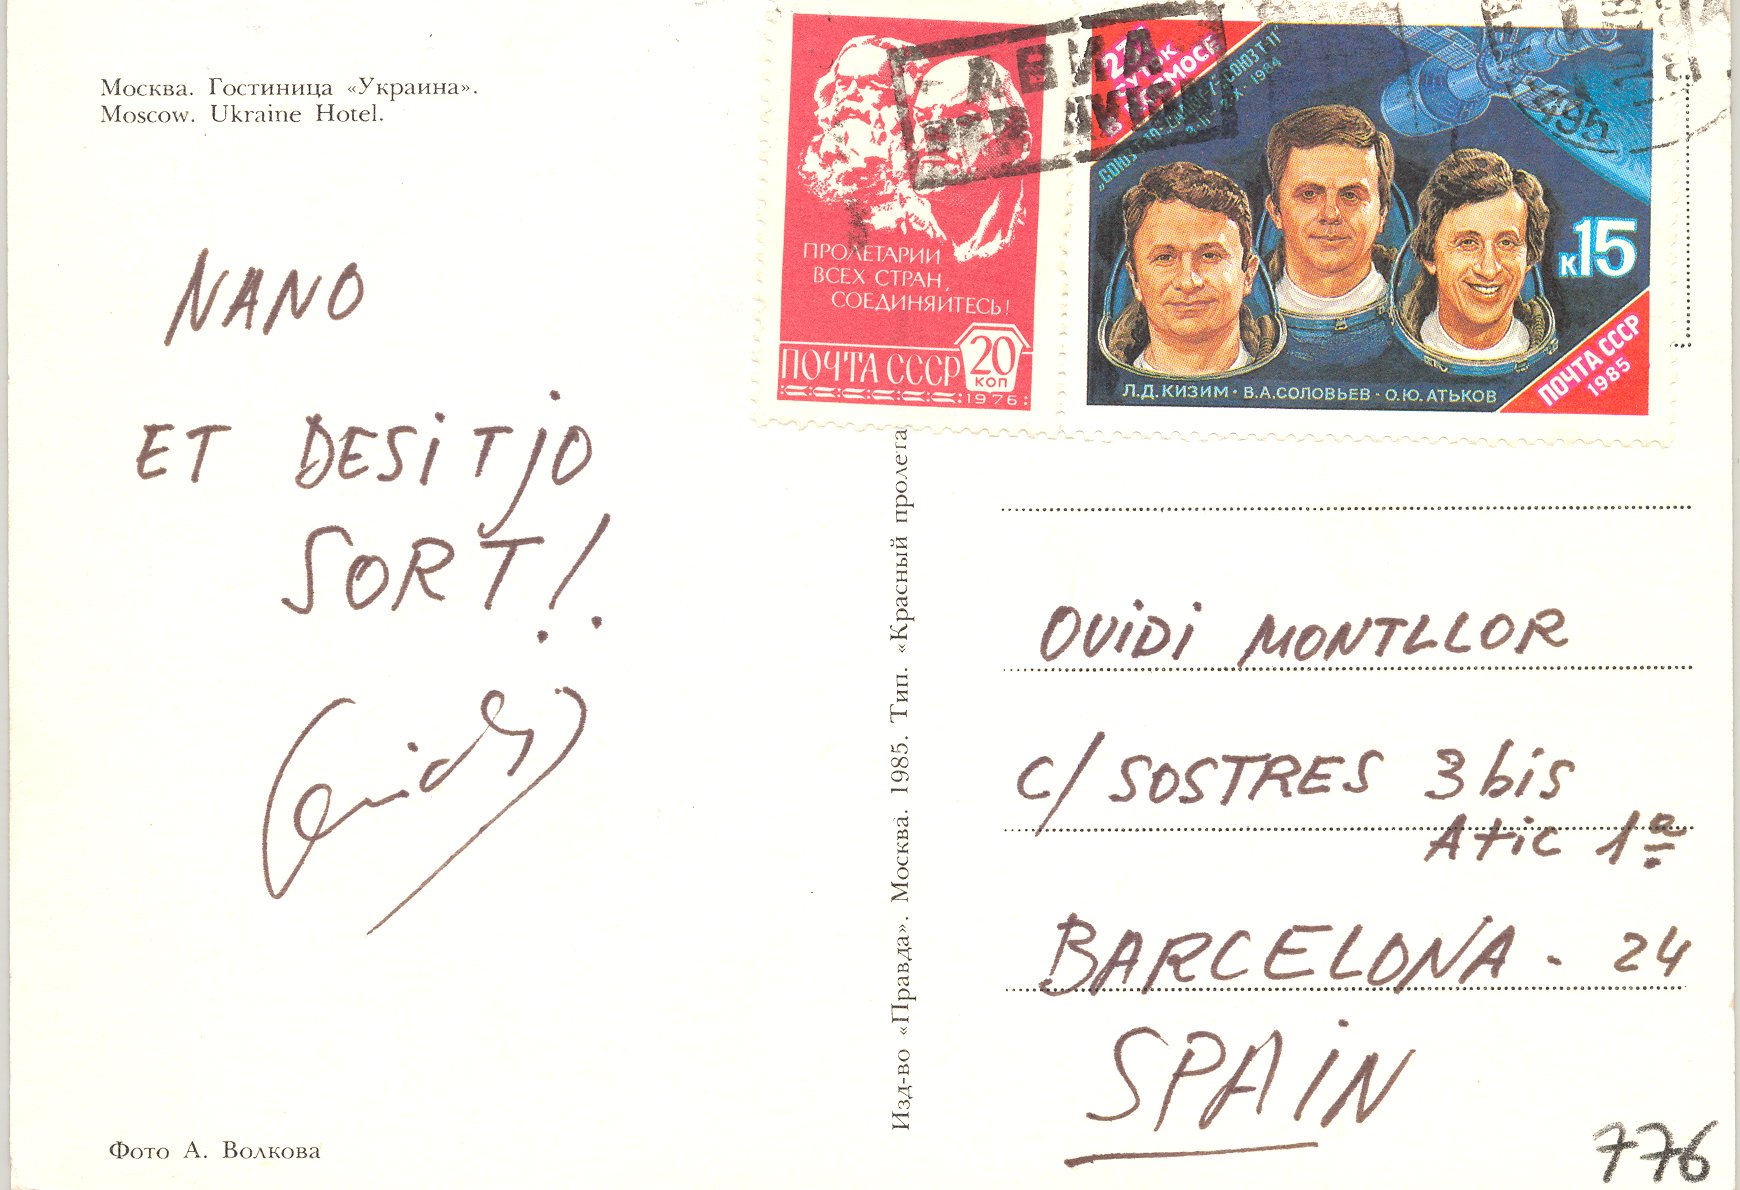 Москва. Гостиница «Украина».
Moscow. Ukraine Hotel.
NANO
ET DESITJO
SORT!
Ovidi
ПРОЛЕТАРИИ
ВСЕХ СТРАН,
СОЕДИНЯЙТЕСЬ!
ПОЧТА СССР
20
КОП
1976
АВИА
237
СУТОК
В КОСМОСЕ
СОЮЗ Т-11"
1984
495
к15
ПОЧТА СССР
1985
Л.Д.КИЗИМ · В.А.СОЛОВЬЕВ · О.Ю.АТЬКОВ
Изд-во «Правда». Москва. 1985. Тип. «Красный пролета
OVIDI MONTLLOR
C/ SOSTRES 3 bis
Atic 1ª
BARCELONA - 24
SPAIN
Фото А. Волкова
776